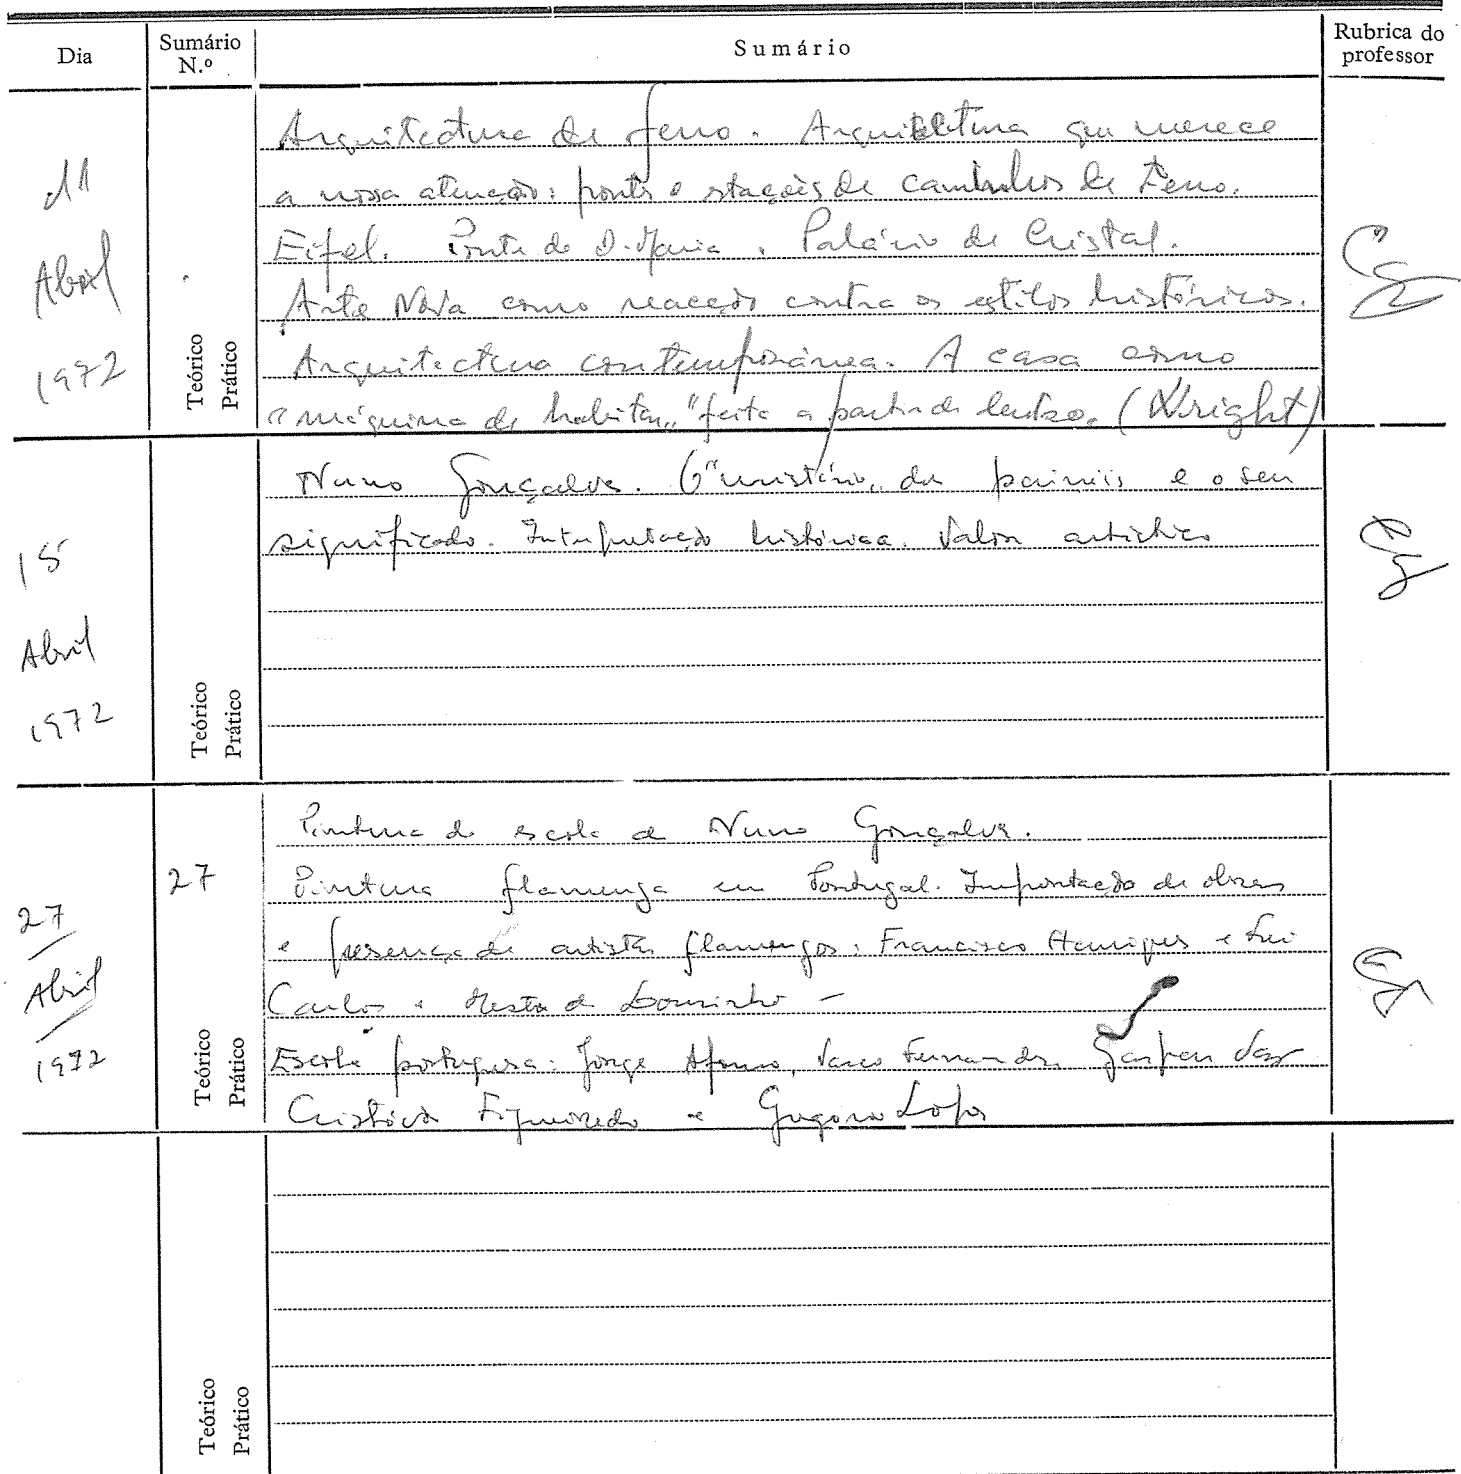 Dia
Sumário N.º
Sumário
Rubrica do professor
11
Abril
1972
Teórico
Prático
Arquitectura de ferro. Arquitectura que merece
a nossa atenção: pontes e estações de caminhos de Ferro.
Eifel. Ponte de D. Maria. Palácio de Cristal.
Arte Nova como reacção contra os estilos históricos.
Arquitectura contemporânea. A casa como
"máquina de habitar" feita a partir de dentro. (Wright)
15
Abril
1972
Teórico
Prático
Nuno Gonçalves. O "mistério" dos paineis e o seu
significado. Interpretação histórica. Valor artistico
27
Abril
1972
27
Teórico
Prático
Pintura da escola de Nuno Gonçalves.
Pintura flamenga em Portugal. Importação de obras
e presença de artistas flamengos: Francisco Henriques e Frei
Carlos e Mestre da Lourinhã -
Escola portuguesa: Jorge Afonso, Vasco Fernandes, Gaspar Vaz
Cristóvão Figueiredo e Gregório Lopes
Teórico
Prático